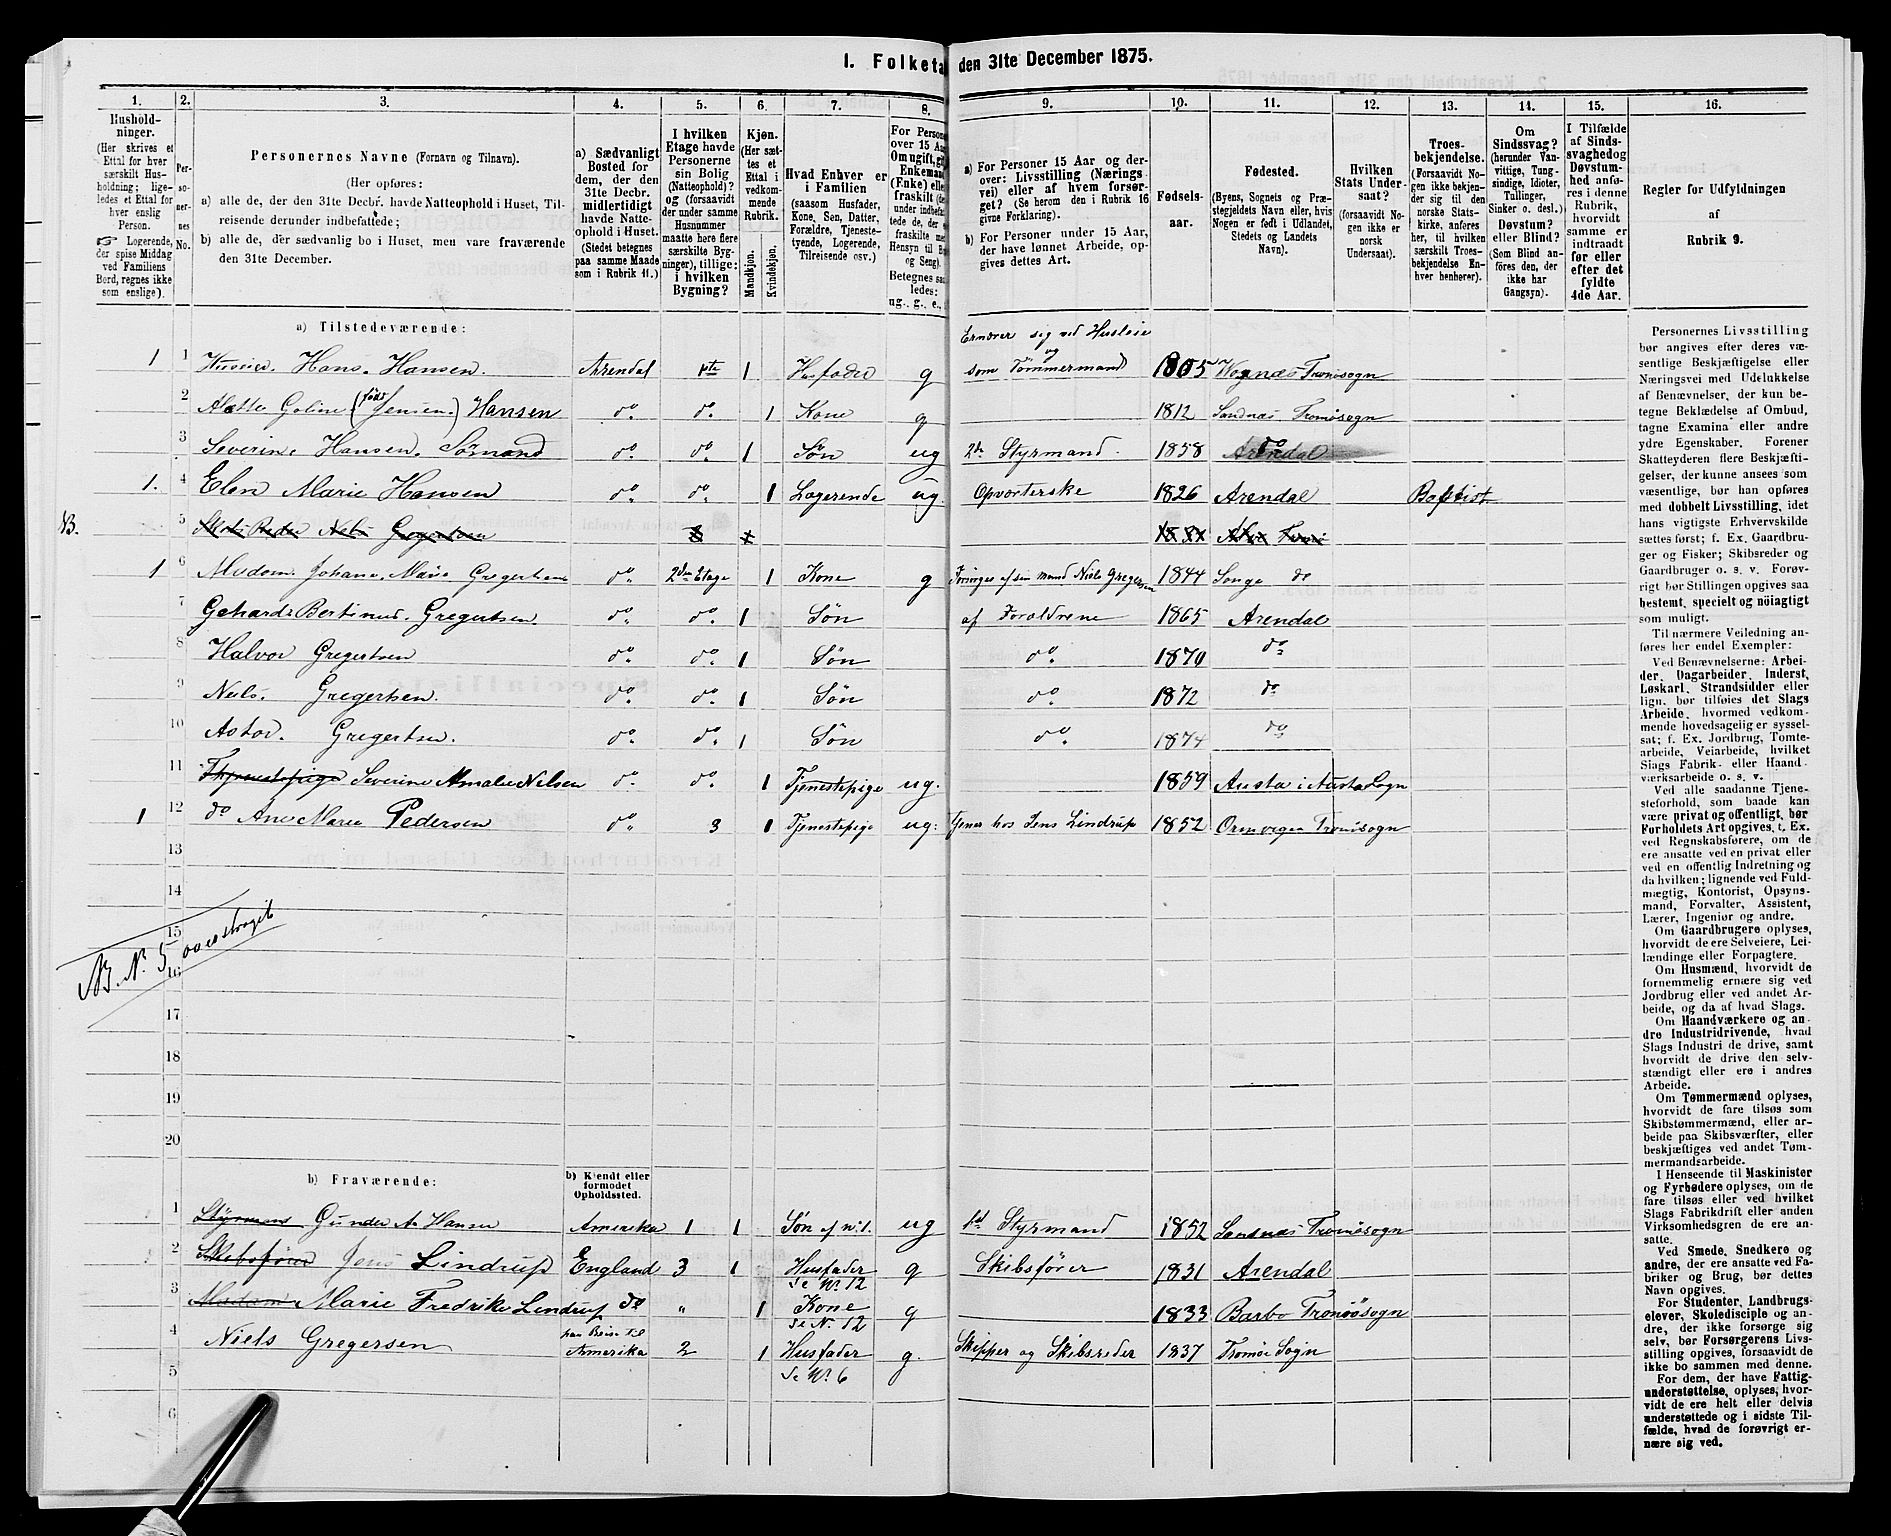 I. Folketa den 31te December 1875.
1. 2. 3. 4. 5. 6. 7. 8. 9. 10. 11. 12. 13. 14. 15. 16.
Husholdninger.
(Her skrives et Ettal for hver særskilt Husholdning; ligeledes et Ettal for hver enslig Person.
☞ Logerende, der spise Middag ved Familiens Bord, regnes ikke som enslige).
Personernes No.
Personernes Navne (Fornavn og Tilnavn).
(Her opføres:
a) alle de, der den 31te Decbr. havde Natteophold i Huset, Tilreisende derunder indbefattede;
b) alle de, der sædvanlig bo i Huset, men vare fraværende den 31te December.
a) Sædvanligt Bosted for dem, der den 31te Decbr. midlertidigt havde Natteophold i Huset.
(Stedet betegnes paa samme Maade som i Rubrik 11.)
I hvilken Etage havde Personerne sin Bolig (Natteophold)? og (forsaavidt der under samme Husnummer maatte høre flere særskilte Bygninger), tillige: i hvilken Bygning?
Kjøn.
(Her sættes et Ettal i vedkommende Rubrik.
Mandkjøn. Kvindekjøn.
Hvad Enhver er i Familien
(saasom Husfader, Kone, Søn, Datter, Forældre, Tjenestetyende, Logerende, Tilreisende osv.)
a) For Personer 15 Aar og derover: Livsstilling (Næringsvei) eller af hvem forsørget? (Se herom den i Rubrik 16 givne Forklaring).
b) For Personer under 15 Aar, der have lønnet Arbeide, opgives dettes Art.
Fødselsaar.
Fødested.
(Byens, Sognets og Præstegjeldets Navn eller, hvis Nogen er født i Udlandet, Stedets og Landets Navn).
Hvilken Stats Undersaat?
(forsaavidt Nogen ikke er norsk Undersaat).
Troesbekjendelse.
(Forsaavidt Nogen ikke bekjender sig til den norske Statskirke, anføres her, til hvilken særskilt Troesbekjendelse Enhver henhører).
Om Sindssvag?
(herunder Vanvittige, Tungsindige, Idioter, Tullinger, Sinker o. desl.)
Døvstum? eller Blind?
(Som Blind anføres den, der ikke har Gangsyn).
I Tilfælde af Sindssvaghed og Døvstumhed anføres i denne Rubrik, hvorvidt samme er indtraadt før eller efter det fyldte 4de Aar.
Regler for Udfyldningen af Rubrik 9.
a) Tilstedeværende:
Ernærer sig ved Husleie og
1 1 Hans. Hansen. Arendal 1ste 1 Husfader g som Tømmermand 1805 Tromøsogn
2 (født Jensen) Hansen do. do. 1 Kone g 1812 Sandnæs Tromøsogn
3 Severin. Hansen. Sømand do. do. 1 Søn ug 2de Styrmand. 1858 Arendal do
1. 4 Elen Marie Hansen do. do. 1 Logerende ug. Opvarterske 1826 Arendal Baptist
NB. 5 Gregertsen
1 6 Madam Johane Marie Gregertsen do. 2den Etage 1 Kone g Foringes af sin mand Niels Gregersen 1844 Songe do
7 Gehards Bertinius. Gregertsen. do. do. 1 Søn af Foraldrene 1865 Arendal
8 Halvor Gregertsen do. do. 1 Søn do. 1870 do
9 Niels. Gregertsen. do. do. 1 Søn do. 1872 do
10 Gregertsen. do. do. 1 Søn do. 1874 do
11 Severine Amalie Nilsen do. do. 1 Tjenestepige ug. 1859 Austa i Austa Sogn
1 12 do Ane Marie Pedersen do. 3 1 Tjenestepige ug: Tjener hos Jens Lindrup 1852 Tromøsogn
13
14
15
16
NB. N. 5 overstraget
17
18
19
20
b) Fraværende:
b) Kjendt eller formodet Opholdssted.
1 Styrmand Gunder A. Hansen Amerika 1 1 Søn af N. 1. ug 1st Styrmand 1852 Sandnæs Tromøsogn
2 Skibsfører Jens Lindrup England 3 1 Husfader g Skibsfører 1831 Arendal
Se N. 12
3 Madam Marie Fredrike Lindrup do " 1 Kone g 1833 Barbo Tromøsogn
Se N. 12
4 Niels Gregersen paa Reise til Amerika 2 1 Husfader g. Skipper og Skibsreder 1837 Tromøe Sogn
Se No. 6
5
6
Personernes Livsstilling bør angives efter deres væsentlige Beskjæftigelse eller Næringsvei med Udelukkelse af Benævnelser, der kun betegne Beklædelse af Ombud, tagne Examina eller andre ydre Egenskaber. Forener Skatteyderen flere Beskjæftigelser, der kunne ansees som væsentlige, bør han opføres med dobbelt Livsstilling, idet hans vigtigste Erhvervskilde sættes først; f. Ex. Gaardbruger og Fisker; Skibsreder og Gaardbruger o. s. v. Forøvrigt bør Stillingen opgives saa bestemt, specielt og nöiagtigt som muligt.
Til nærmere Veiledning anføres her endel Exempler:
Ved Benævnelserne: Arbeider, Dagarbeider, Inderst, Løskarl, Strandsidder eller lign. bør tilføies det Slags Arbeide, hvormed vedkommende hovedsagelig er sysselsat; f. Ex. Jordbrug, Tomtearbeide, Veiarbeide, hvilket Slags Fabrik- eller Haandværksarbeide o. s. v.
Ved alle saadanne Tjenesteforhold, som baade kan være privat og offentligt, bør Forholdets Art opgives, t. Ex. ved Regnskabsførere, om de ere ansatte ved en privat eller ved en offentlig Indretning og da hvilken; lignende ved Fuldmægtig, Kontorist, Opsynsmand, Forvalter, Assistent, Lærer, Ingeniør og andre.
Om Gaardbrugere oplyses, hvorvidt de ere Selveiere, Leilændinge eller Forpagtere.
Om Husmænd, hvorvidt de fornemmelig ernære sig ved Jordbrug eller ved andet Arbeide, og da af hvad Slags.
Om Haandværkere og andre Industridrivende, hvad Slags Industri de drive, samt hvorvidt de drive den selvstændigt eller ere i andres Arbeide.
Om Tømmermænd oplyses, hvorvidt de fare tilsøs som Skibstømmermænd, eller arbeide paa Skibsværfter, eller beskjæftiges ved andet Tømmermandsarbeide.
I Henseende til Maskinister og Fyrbødere oplyses, om de fare tilsøs eller ved hvilket Slags Fabrikdrift eller anden Virksomhedsgren de ere ansatte.
Ved Smede, Snedkere og andre, der ere ansatte ved Fabriker og Brug, bør dettes Navn opgives.
For Studenter, Landbrugselever, Skoledisciple og andre, der ikke forsørge sig selv, bør Forsørgerens Livsstilling opgives, forsaavidt de ikke bo sammen med denne.
For dem, der have Fattigunderstøttelse, oplyses, hvorvidt de ere helt eller delvis understøttede og i sidste Tilfælde, hvad de forøvrigt ernære sig ved.